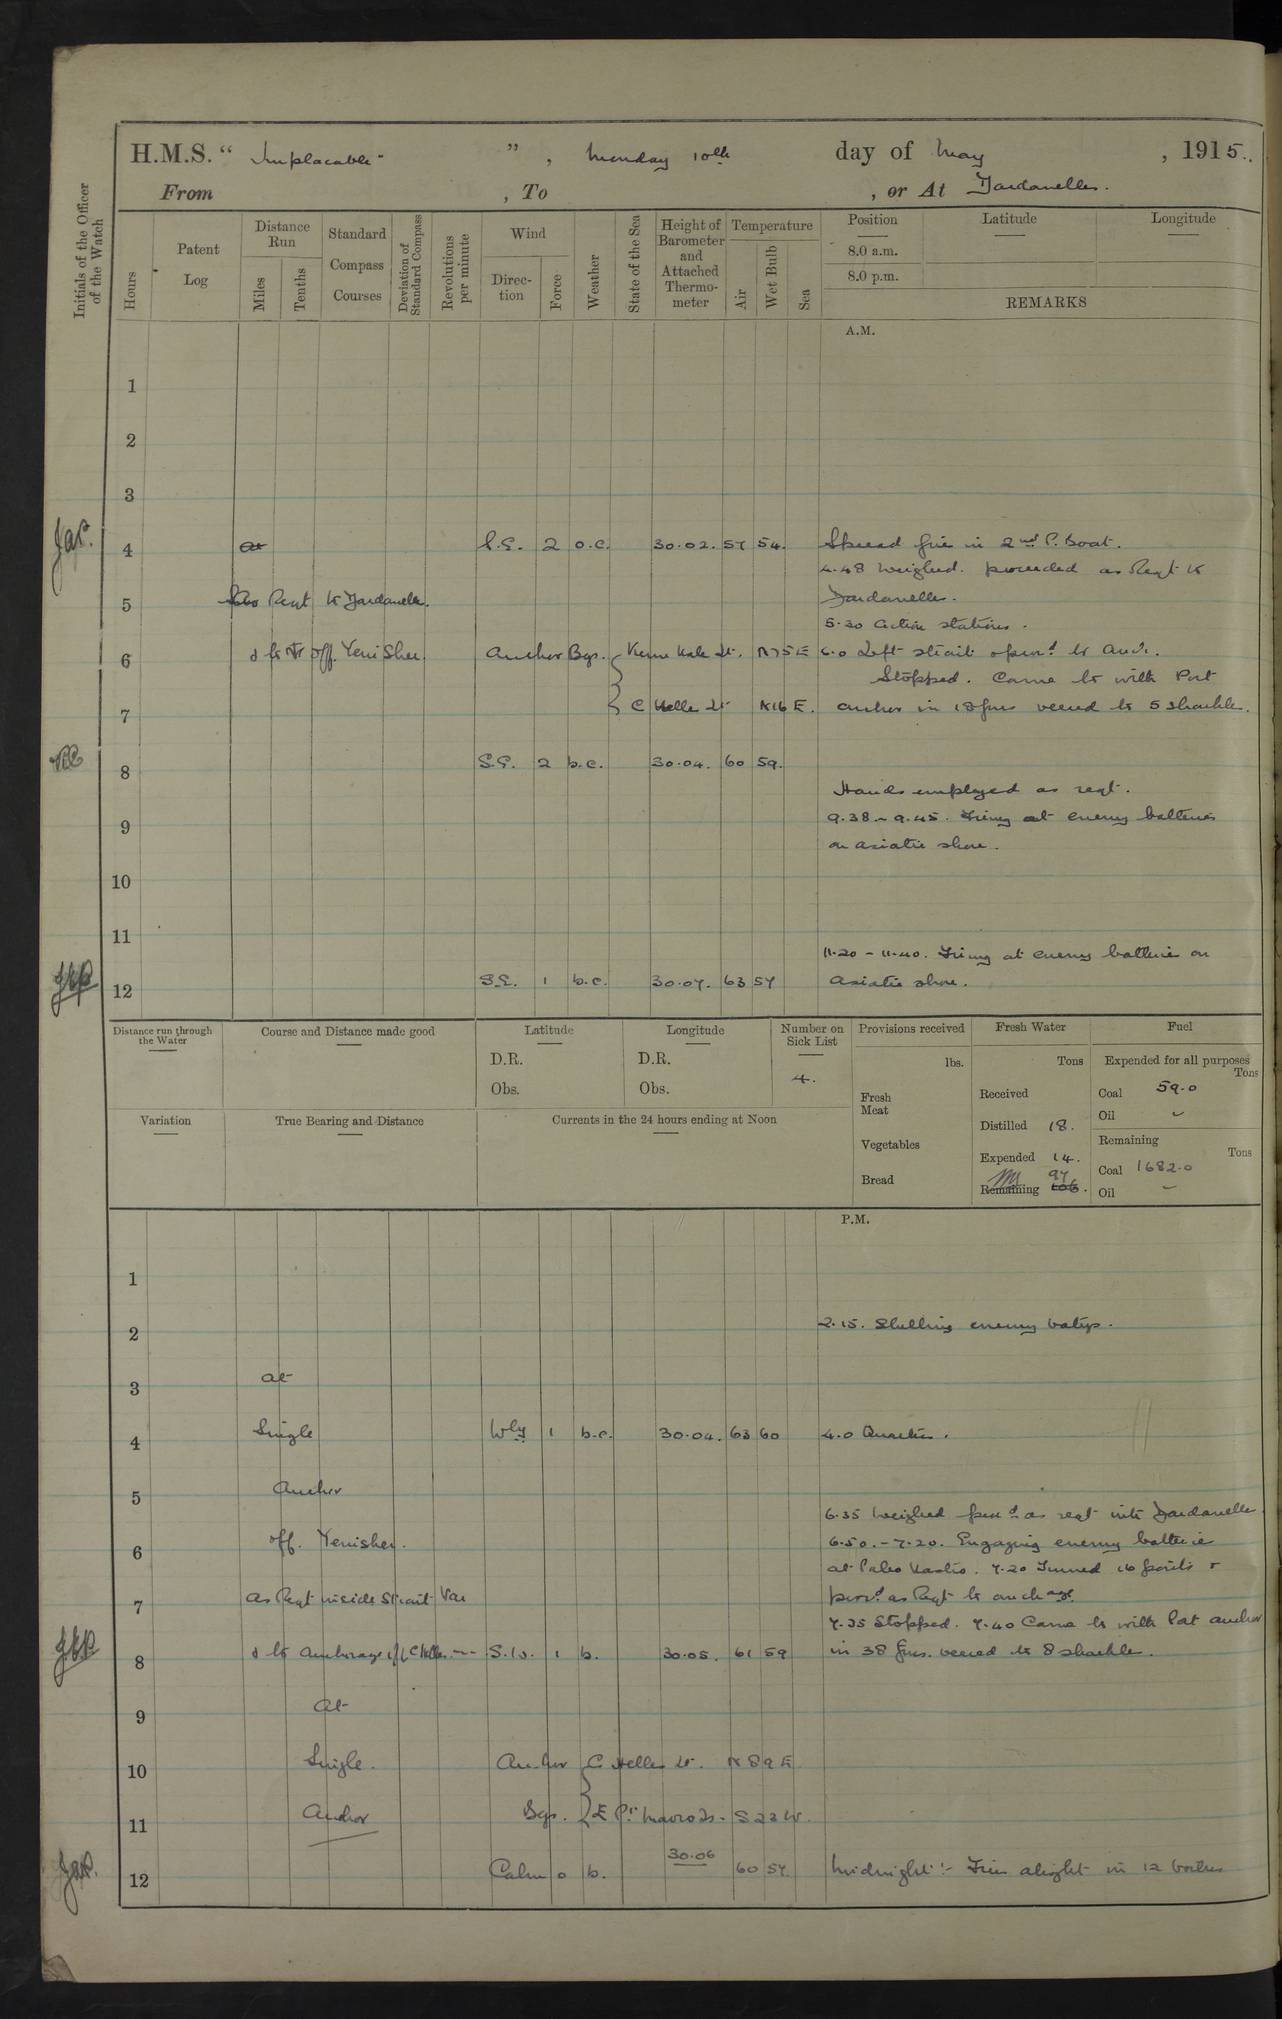 H.M.S. "Implacable", Monday 10th day of May, 1915.
From , To , or At Dardanelles.
Initials of the Officer of the Watch
Hours
Patent Log
Distance Run
Miles
Tenths
Standard Compass Courses
Deviation of Standard Compass
Revolutions per minute
Wind
Direction
Force
Weather
State of the Sea
Height of Barometer and Attached Thermometer
Temperature
Air
Wet Bulb
Sea
Position
Latitude
Longitude
8.0 a.m.
8.0 p.m.
REMARKS
A.M.
1
2
3
4 at S.E. 2 o.c. 30.02. 57 54. Spread fires in 2nd P. Boat.
4.48 Weighed. proceeded as Reqt to
5 Reqt to Dardanelles. Dardanelles.
5.30 Action stations.
6 off Yeni Sher Anchor Bgs. Kum Kale Lt. N75E 6.0 Left strait open'd to Anch.
Stopped. Came to with Port
7 C Helles Lt N16E. anchor in 18 fms veered to 5 shackles.
8 S.E. 2 b.c. 30.04. 60 59.
Hands employed as reqt.
9 9.38 - 9.45. Firing at enemy batteries
on Asiatic shore.
10
11
11.20 - 11.40. Firing at enemy batteries on
12 S.E. 1 b.c. 30.07. 63 57 Asiatic shore.
Distance run through the Water
Course and Distance made good
Latitude
D.R.
Obs.
Longitude
D.R.
Obs.
Number on Sick List
4.
Provisions received
lbs.
Fresh Meat
Vegetables
Bread
Fresh Water
Tons
Received
Distilled 18.
Expended 14.
Remaining 97 106.
Fuel
Expended for all purposes
Tons
Coal 59.0
Oil -
Remaining
Tons
Coal 1682.0
Oil -
Variation
True Bearing and Distance
Currents in the 24 hours ending at Noon
P.M.
1
2 2.15. Shelling enemy batys.
3 at
4 Single Wly 1 b.c. 30.04. 63 60 4.0 Quarters.
5 Anchor
6.35 Weighed. proc'd as reqt into Dardanelles
6 off. Yenisher. 6.50. - 7.20. Engaging enemy batteries
at Paleo Kastro. 7.20 Turned 16 points &
7 as Reqt inside Strait Var proc'd as Reqt to anchage.
7.35 Stopped. 7.40 Came to with Port anchor
8 & to Anchorage off C Helles S.W. 1 b. 30.05. 61 59 in 38 fms. veered to 8 shackles.
9 At
10 Single. Anchor C Helles Lt. N 89 E
11 Anchor Bgs. S 22 W.
12 Calm 0 b. 30.06 60 57. Midnight:- Fires alight in 12 boilers